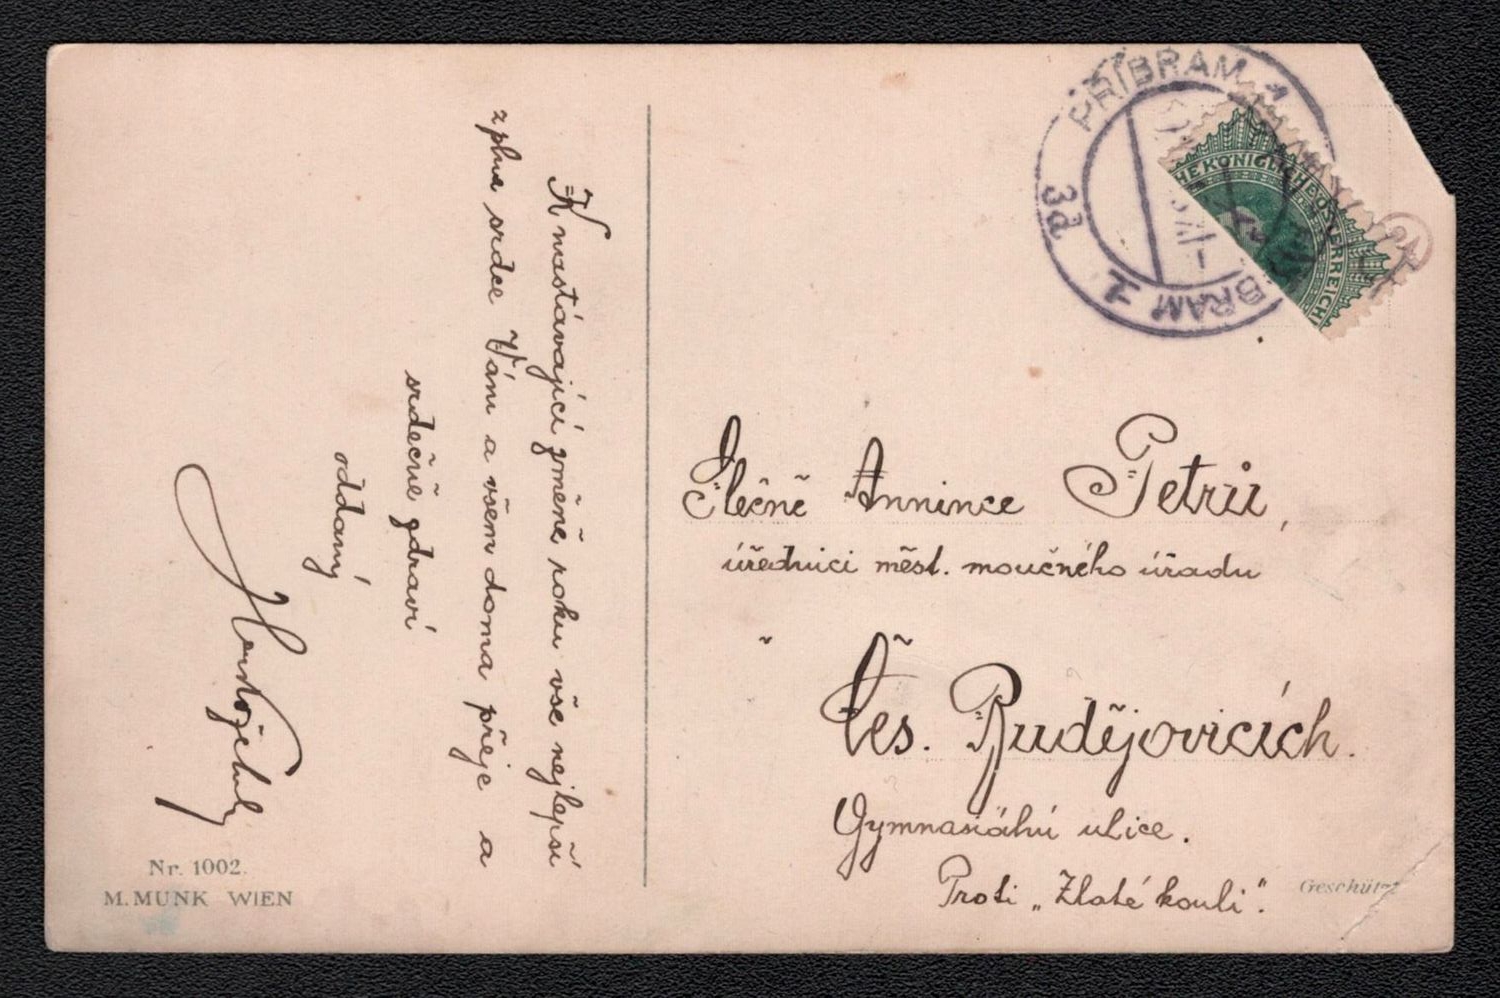 K nastávající změně roku vše nejlepší
zplna srdce Vám a všem doma přeje a
srdečně zdraví
oddaný
Nr. 1002.
M. MUNK WIEN
PŘÍBRAM 1
3d
BRAM 1
HE KÖNIGLICHE ÖSTERREICH
Slečně Annince Petrů,
úřednici měst. moučného úřadu
v Čes. Budějovicích.
Gymnasiální ulice.
Proti „Zlaté kouli".
Geschützt